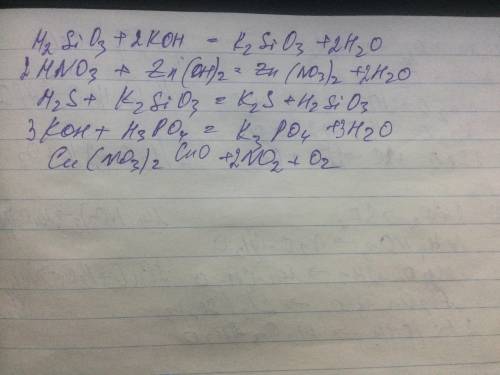 H₂SiO₃ + 2KOH = K₂SiO₃ + 2H₂O
2HNO₃ + Zn(OH)₂ = Zn(NO₃)₂ + 2H₂O
H₂S + K₂SiO₃ = K₂S + H₂SiO₃
3KOH + H₃PO₄ = K₃PO₄ + 3H₂O
Cu(NO₃)₂ CuO + 2NO₂ + O₂